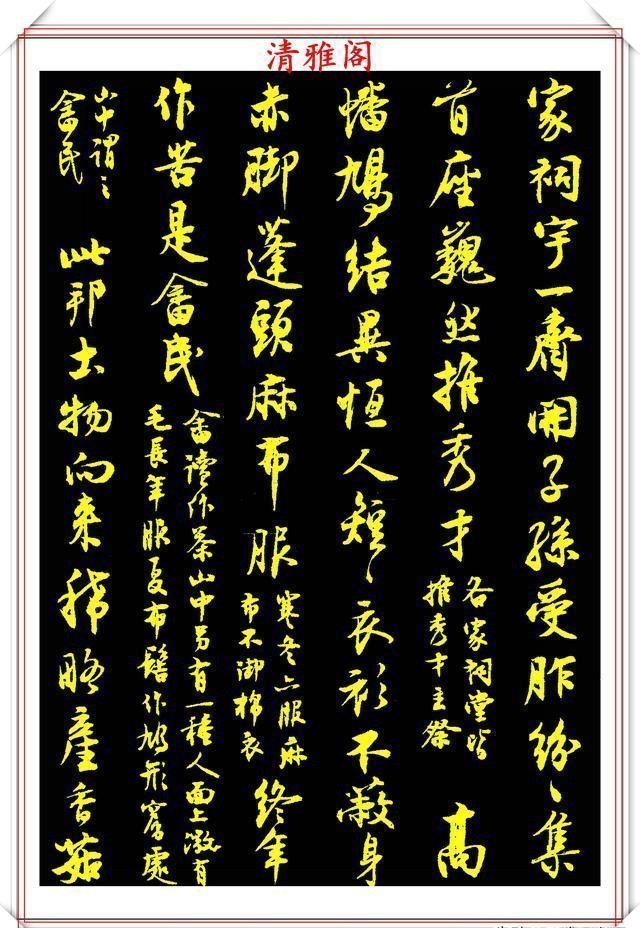 清雅阁
家祠宇一齊開子孫受胙紛〻集
首座巍然推秀才
各家祠堂皆
推秀才主祭
高
蟠鳩結異恆人短〻衣衫不蔽身
赤脚蓬頭麻布服
寒冬亦服麻
布不御棉衣
終年
作苦是畬民
畬讀作茶山中另有一種人面上微有
毛長年服夏布髻作鳩形窮處
山中謂之
畬民
此邦土物向来稀略產香菇